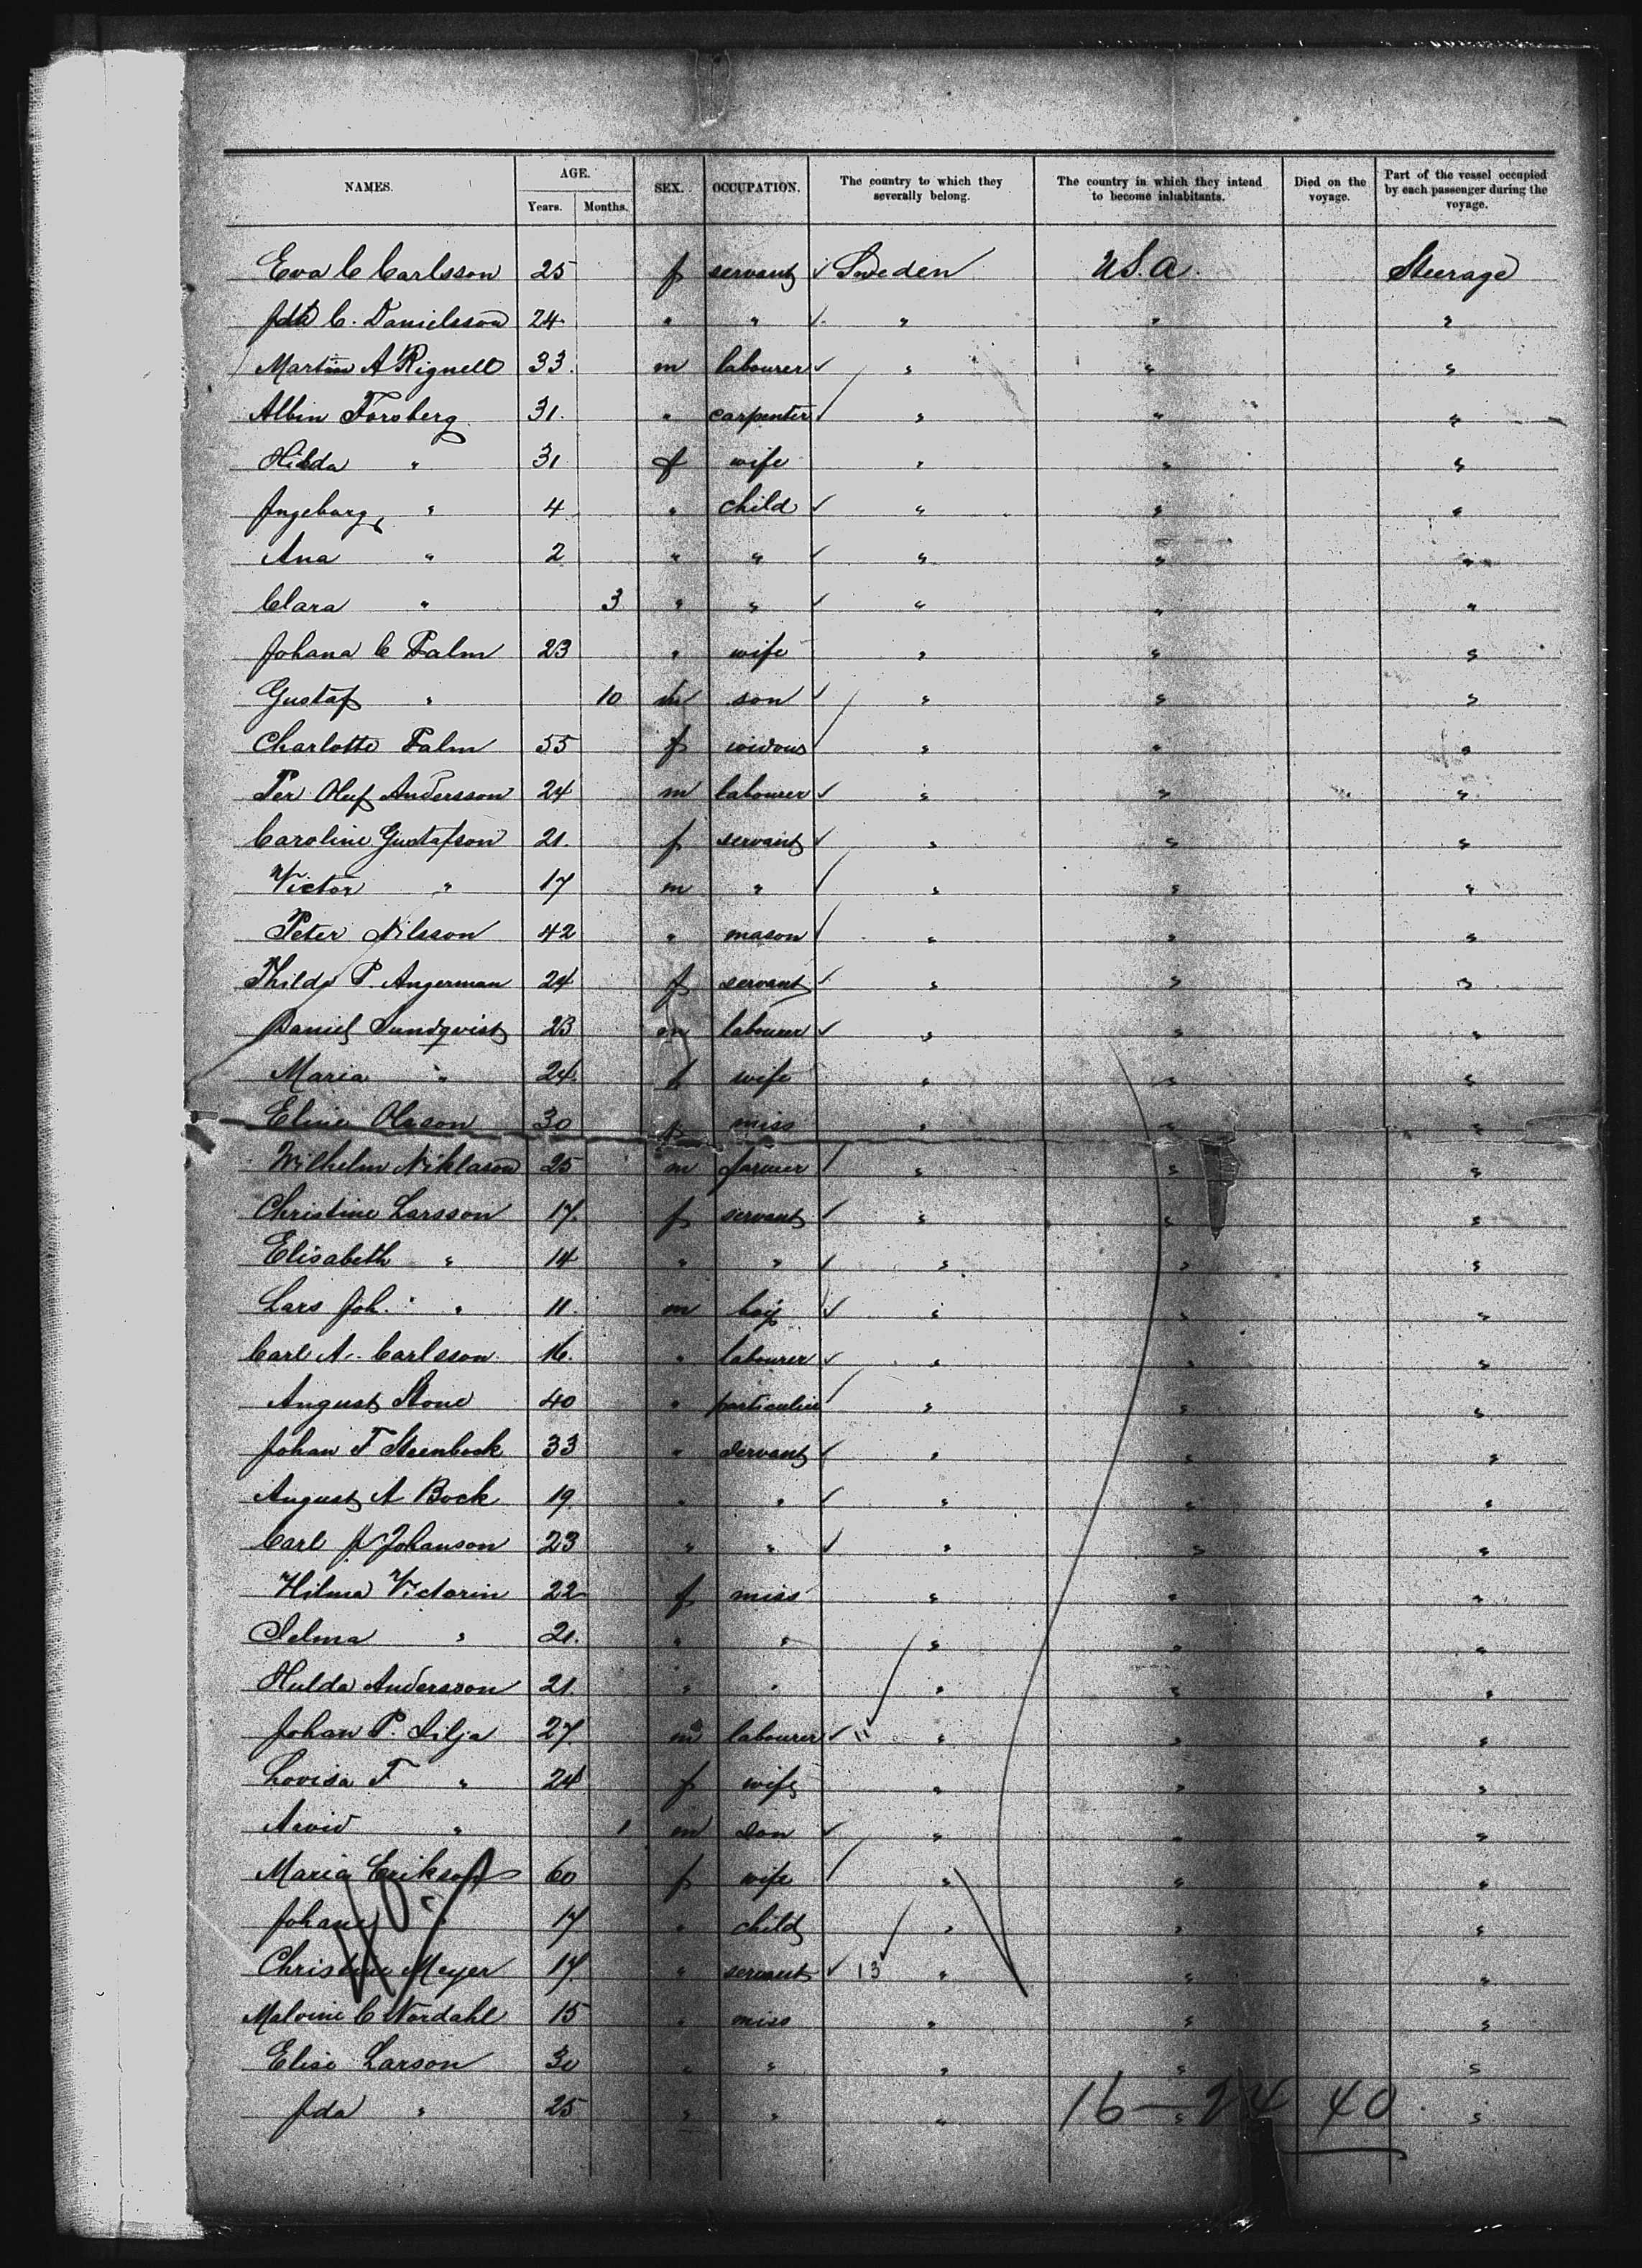 NAMES. AGE. SEX. OCCUPATION. The country to which they severally belong. The country in which they intend to become inhabitants. Died on the voyage. Part of the vessel occupied by each passenger during the voyage.
Years. Months.
Eva C Carlsson 25 f servant Sweden U.S.A. Steerage
Ida C. Danielsson 24 " " " " "
Martin A Rignell 33. m labourer " " "
Albin Forsberg 31. " carpenter " " "
Hilda " 31 f wife " " "
Ingeborg " 4 " child " " "
Ana " 2 " " " " "
Clara " 3 " " " " "
Johana C Palm 23 " wife " " "
Gustaf " 10 m son " " "
Charlotte Palm 55 f widow " " "
Per Oluf Andersson 24 m labourer " " "
Caroline Gustafson 21. f servant " " "
Victor " 17 m " " " "
Peter Nilsson 42 " mason " " "
Thilda P. Angerman 24 f servant " " "
Daniel Sundqvist 23 m labourer " " "
Maria " 24. f wife " " "
Eline Olsson 30 f miss " " "
Wilhelm Niklason 25 m farmer " " "
Christine Larsson 17. f servant " " "
Elisabeth " 14 " " " " "
Lars Joh. " 11. m boy " " "
Carl A. Carlsson 16. " labourer " " "
August Stone 40 " particulier " " "
Johan F Steenbock 33 " servant " " "
August A Bock 19 " " " " "
Carl J Johanson 23 " " " " "
Hilma Victorin 22 f miss " " "
Selma " 21. " " " " "
Hulda Andersson 21. " " " " "
Johan P. Lilja 27. m labourer 11 " " "
Lovisa F " 24 f wife " " "
Arvid " 1 m son " " "
Maria Erikson 60 f wife " " "
Johane " 17 " child " " "
Christine Meyer 17. " servant 13 " " "
Malvine C Nordahl 15 " miss " " "
Elise Larson 30 " " " " "
Ida " 25 " " " " "
16 - 24 40